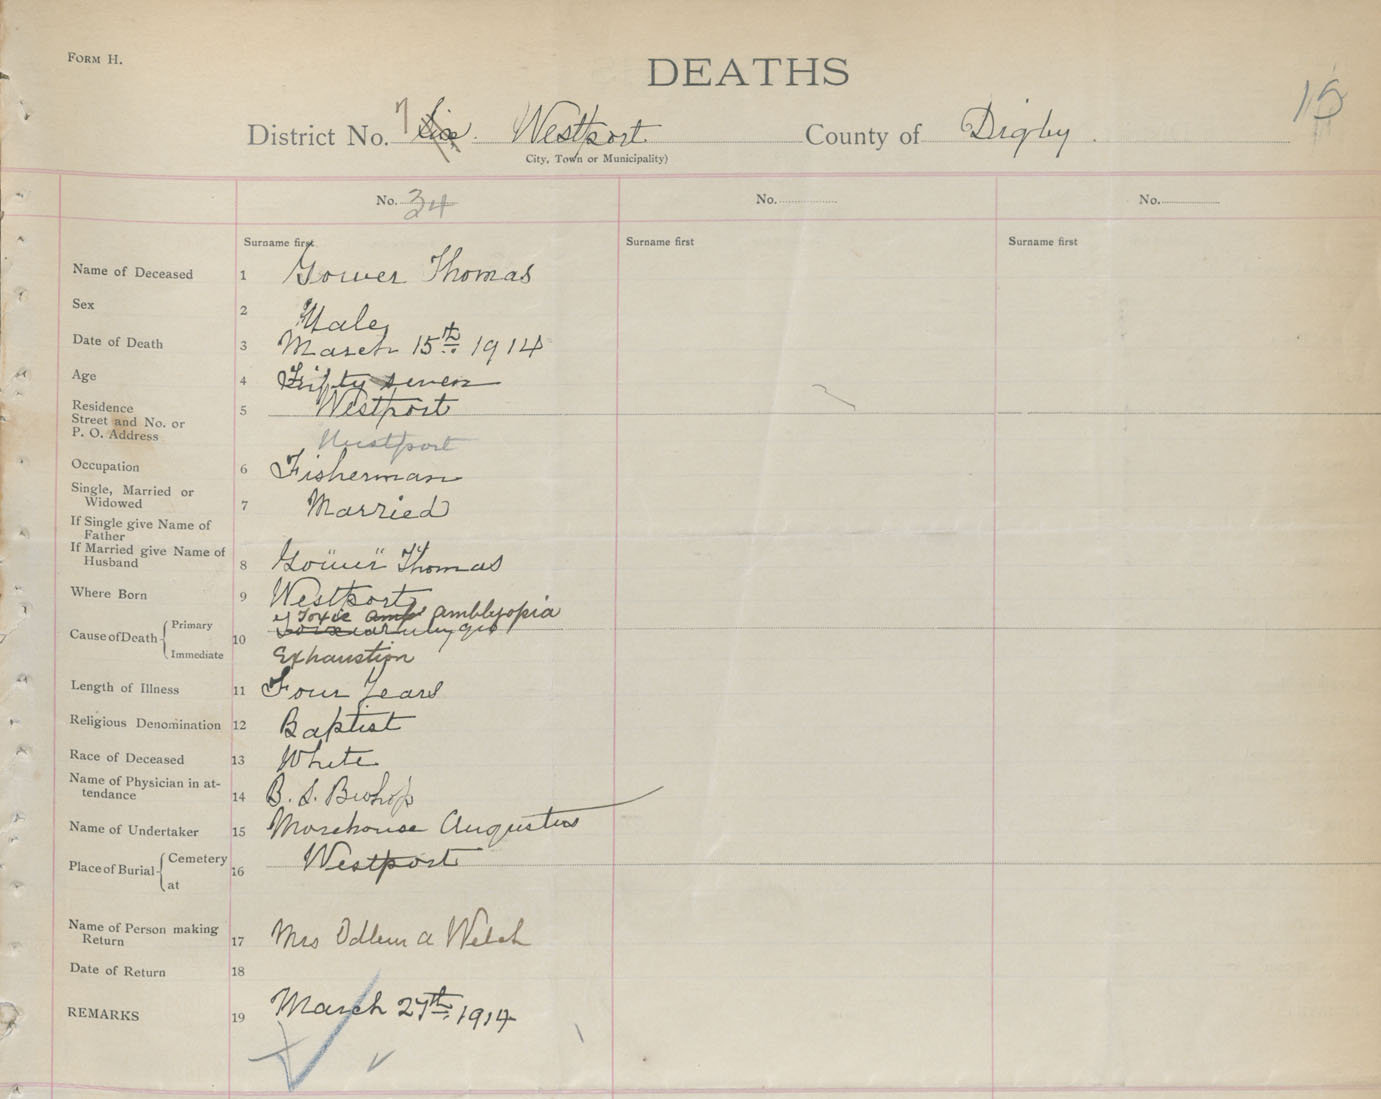 FORM H.
DEATHS
15
District No. 7 Six. Westport County of Digby.
City, Town or Municipality)
No. 34 No. No.
Surname first Surname first Surname first
Name of Deceased 1 Gower Thomas
Sex 2 Male
Date of Death 3 March 15th 1914
Age 4 Fifty seven
Residence 5 Westport
Street and No. or
P. O. Address
Westport
Occupation 6 Fisherman
Single, Married or
Widowed 7 Married
If Single give Name of
Father
If Married give Name of
Husband 8 Gower Thomas
Where Born 9 Westport
Cause of Death Primary 10 Toxic amb amblyopia
Immediate Exhaustion
Length of Illness 11 Four Years
Religious Denomination 12 Baptist
Race of Deceased 13 White
Name of Physician in at-
tendance 14 B. S. Bishop
Name of Undertaker 15 Morehouse Augustus
Place of Burial Cemetery 16 Westport
at
Name of Person making
Return 17 Mrs A Welch
Date of Return 18
REMARKS 19 March 27th 1914